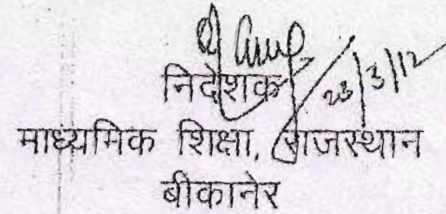 23/3/12
निदेशक
माध्यमिक शिक्षा, राजस्थान
बीकानेर